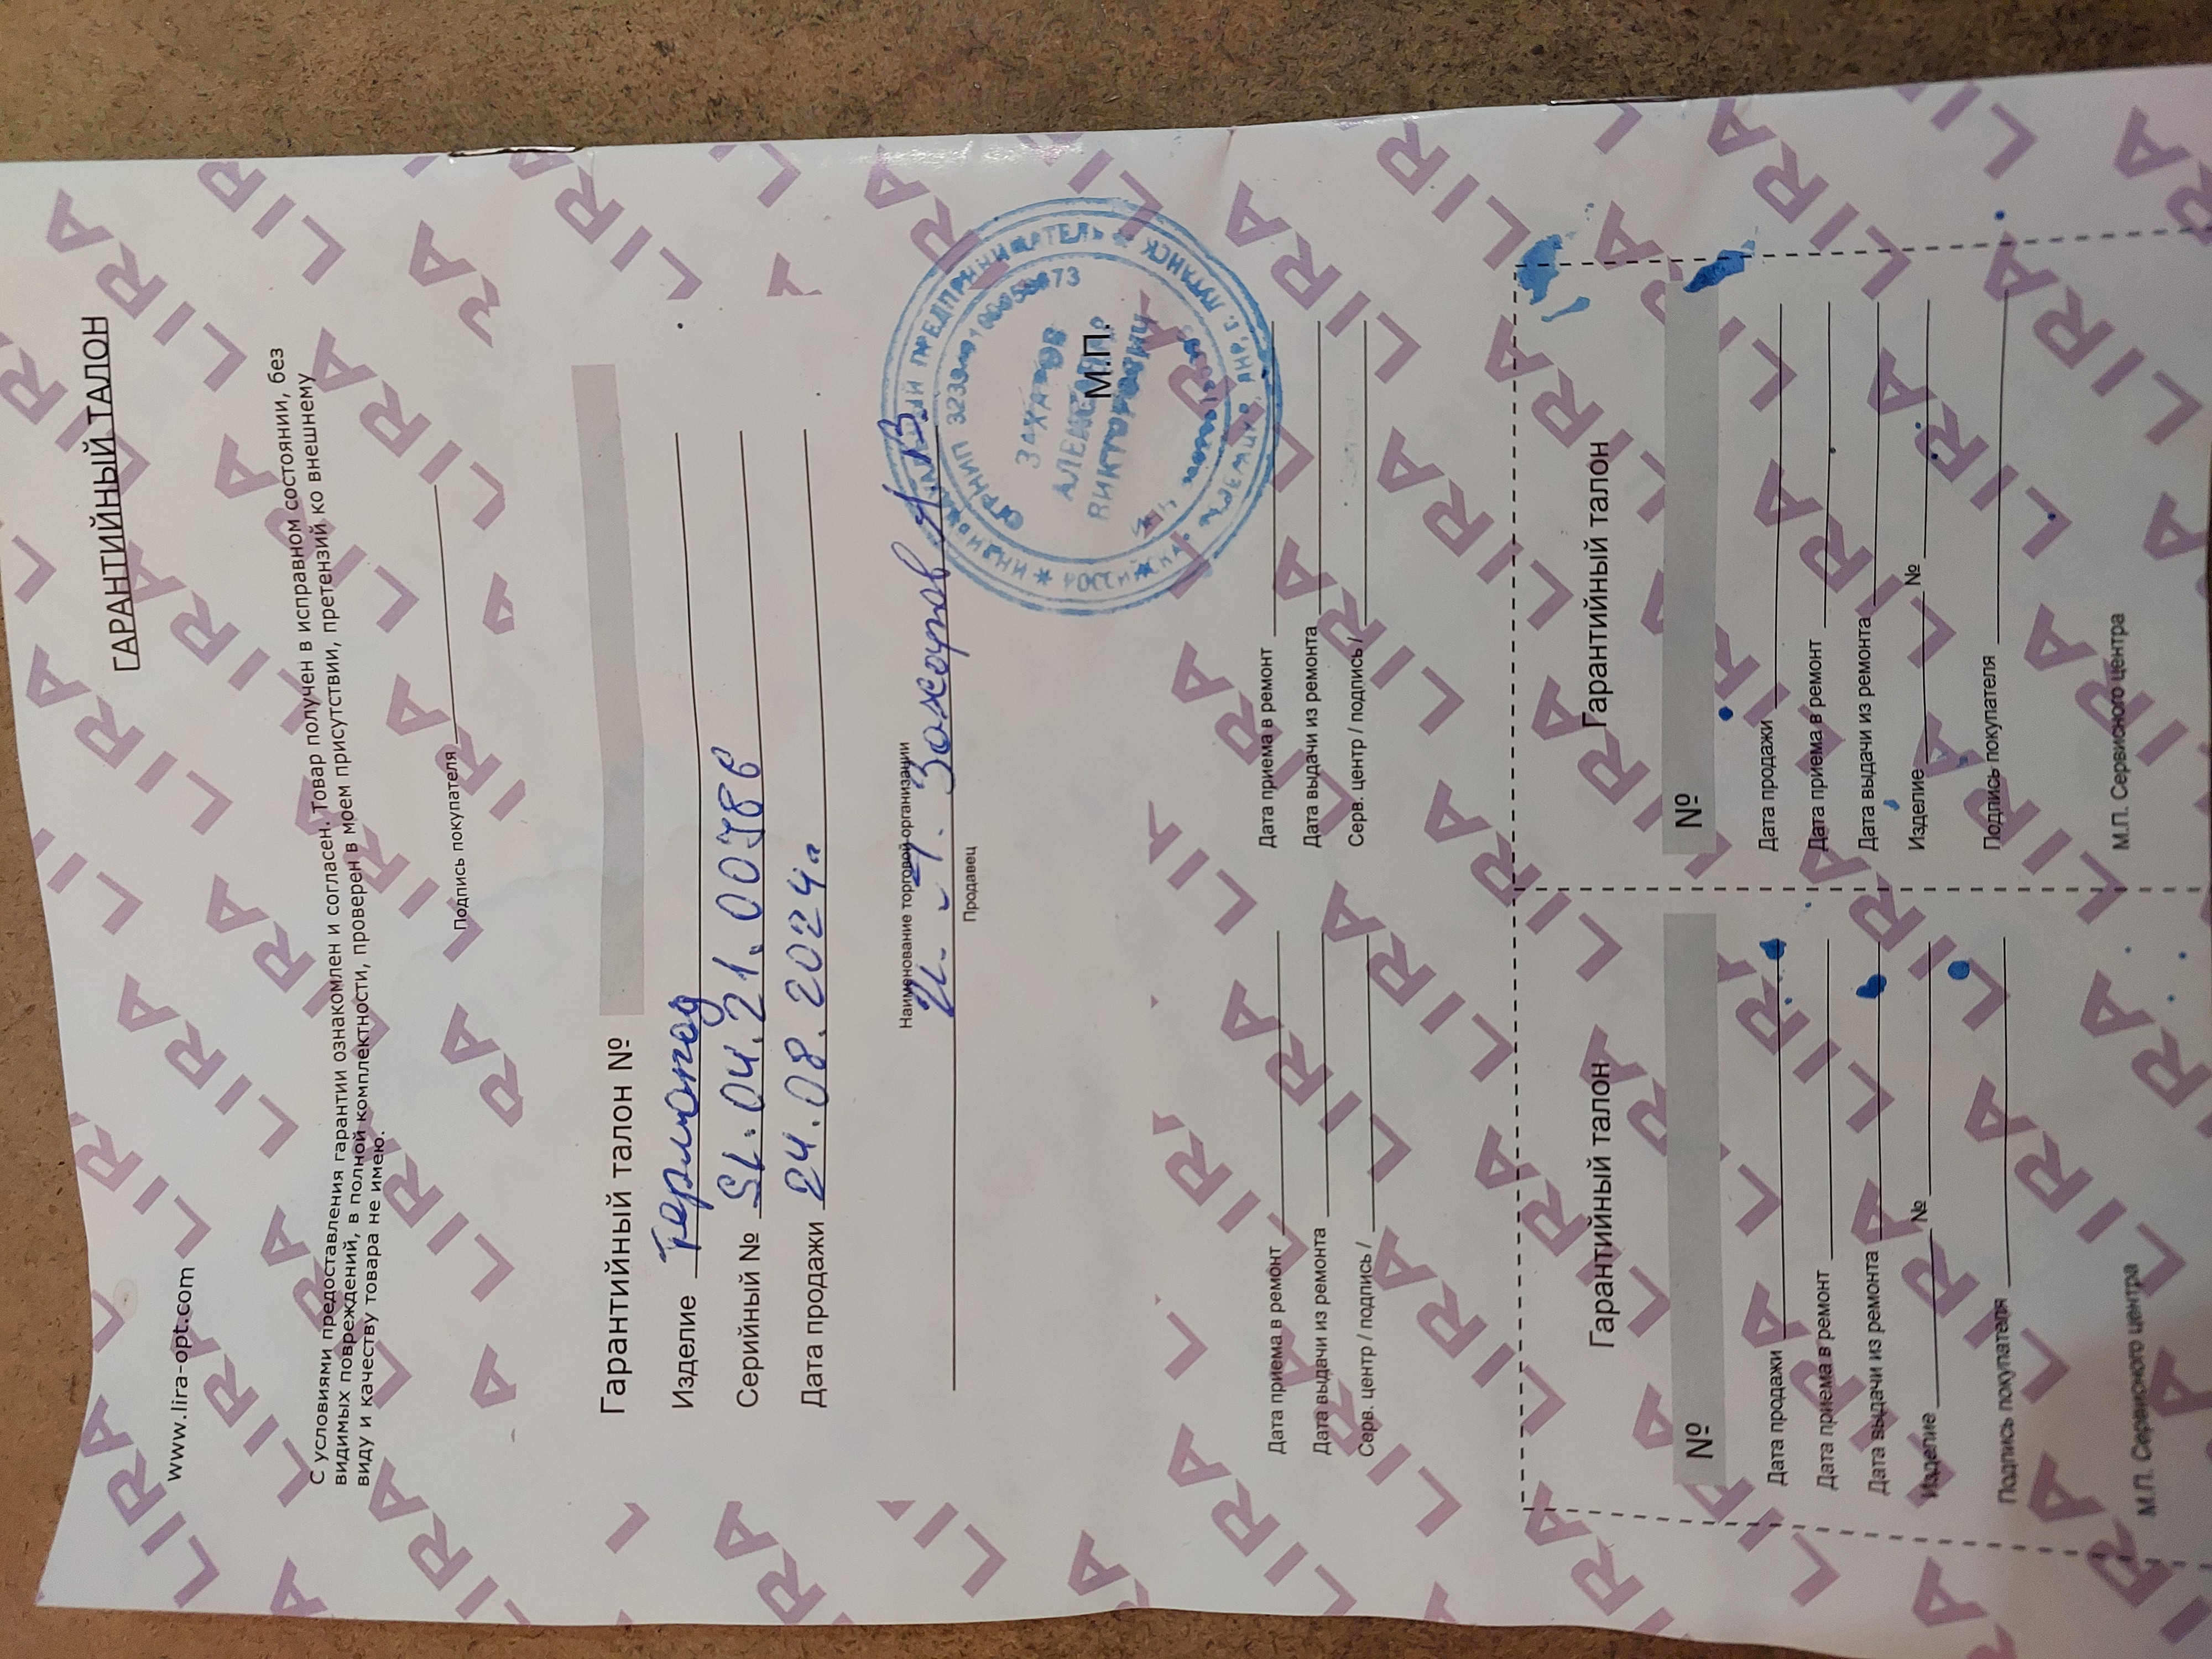 ГАРАНТИЙНЫЙ ТАЛОН
www.lira-opt.com
С условиями предоставления гарантии ознакомлен и согласен. Товар получен в исправном состоянии, без
видимых повреждений, в полной комплектности, проверен в моем присутствии, претензий ко внешнему
виду и качеству товара не имею.
Подпись покупателя
Гарантийный талон №
Изделие Термопод
Серийный № SL.04.21.00786
Дата продажи 24.08.2024г
Наименование торговой организации
Захаров А.В.
Продавец
М.П.
ИНДИВИДУАЛЬНЫЙ ПРЕДПРИНИМАТЕЛЬ
ОГРНИП
ЗАХАРОВ
АЛЕКСАНДР
ВИКТОРОВИЧ
ЛНР, г. ЛУГАНСК
Дата приема в ремонт Дата приема в ремонт
Дата выдачи из ремонта Дата выдачи из ремонта
Серв. центр / подпись / Серв. центр / подпись /
Гарантийный талон Гарантийный талон
№ №
Дата продажи Дата продажи
Дата приема в ремонт Дата приема в ремонт
Дата выдачи из ремонта Дата выдачи из ремонта
Изделие № Изделие №
Подпись покупателя Подпись покупателя
М.П. Сервисного центра М.П. Сервисного центра
LIRA